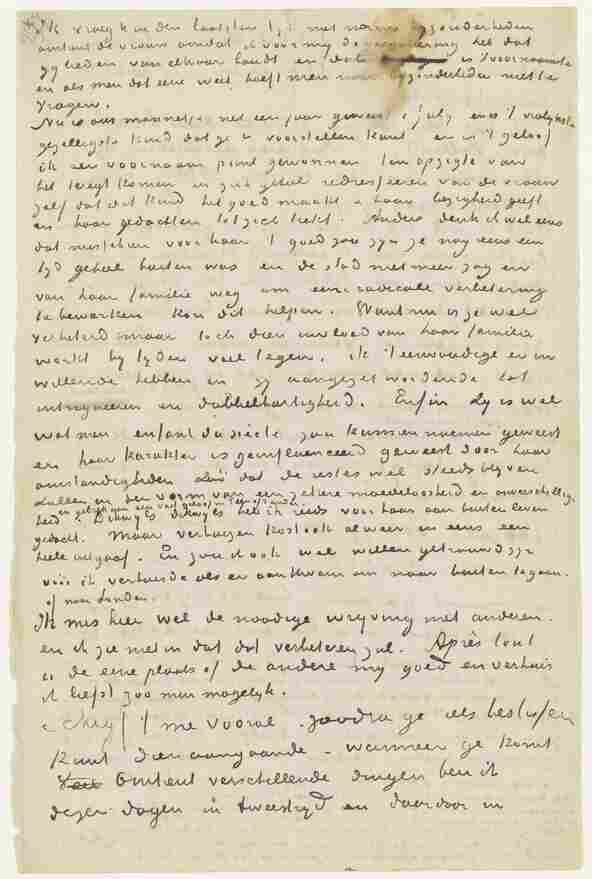 Ik vraag U in den laatsten tijd niet naar bijzonderheden
omtrent de vrouw omdat ik voor mij de verzekering heb dat
gij lieden van elkaar houdt en dat is 't voornaamste
en als men dat eene weet hoeft men naar bijzonderheden niet te
vragen.
Nu is ons mannetje net een jaar geweest 1 july en is 't vrolijkste
gezelligste kind dat ge U voorstellen kunt en is 't geloof
ik een voornaam punt gewonnen ten opzigte van
het teregt komen en zich geheel redresseeren van de vrouw
zelf dat dat kind het goed maakt & haar bezigheid geeft
en haar gedachten tot zich trekt. Anders denk ik wel eens
dat misschien voor haar 't goed zou zijn ze nog eens een
tijd geheel buiten was en de stad niet meer zag en
van haar familie weg om eene radicale verbetering
te bewerken kon dit helpen. Want nu is ze wel
verbeterd maar toch dien invloed van haar familie
werkt bij tijden veel tegen. ik 't eenvoudige er in
willende hebben en zij aangezet wordende tot
intrigueeren en dubbelhartigheid. Enfin zij is wel
wat men enfant du siècle zou kunnen noemen geweest
en haar karakter is geinfluenceerd geweest door haar
omstandigheden zóó dat de restes wel steeds blijven
zullen in den vorm van een zekere moedeloosheid en onverschillig-
en gebrek aan een vast geloof in een of ander
heid. Dikwijls dikwijls heb ik reeds voor haar aan buiten leven
gedacht. Maar verhuizen kost ook alweer in eens een
heele uitgaaf. En zou ik ook wel willen getrouwd zijn
vóór ik verhuisde als er aan kwam om naar buiten te gaan.
of naar Londen.
Ik mis hier wel de noodige wrijving met anderen.
en ik zie niet in dat dat verbeteren zal. Après tout
is de eene plaats of de andere mij goed en verhuis
ik liefst zoo min mogelijk.
Schrijf 't me vooral zoodra ge iets beslissen
kunt dienaangaande – wanneer ge komt
Omtrent verschillende dingen ben ik
dezer dagen in tweestrijd en daardoor in